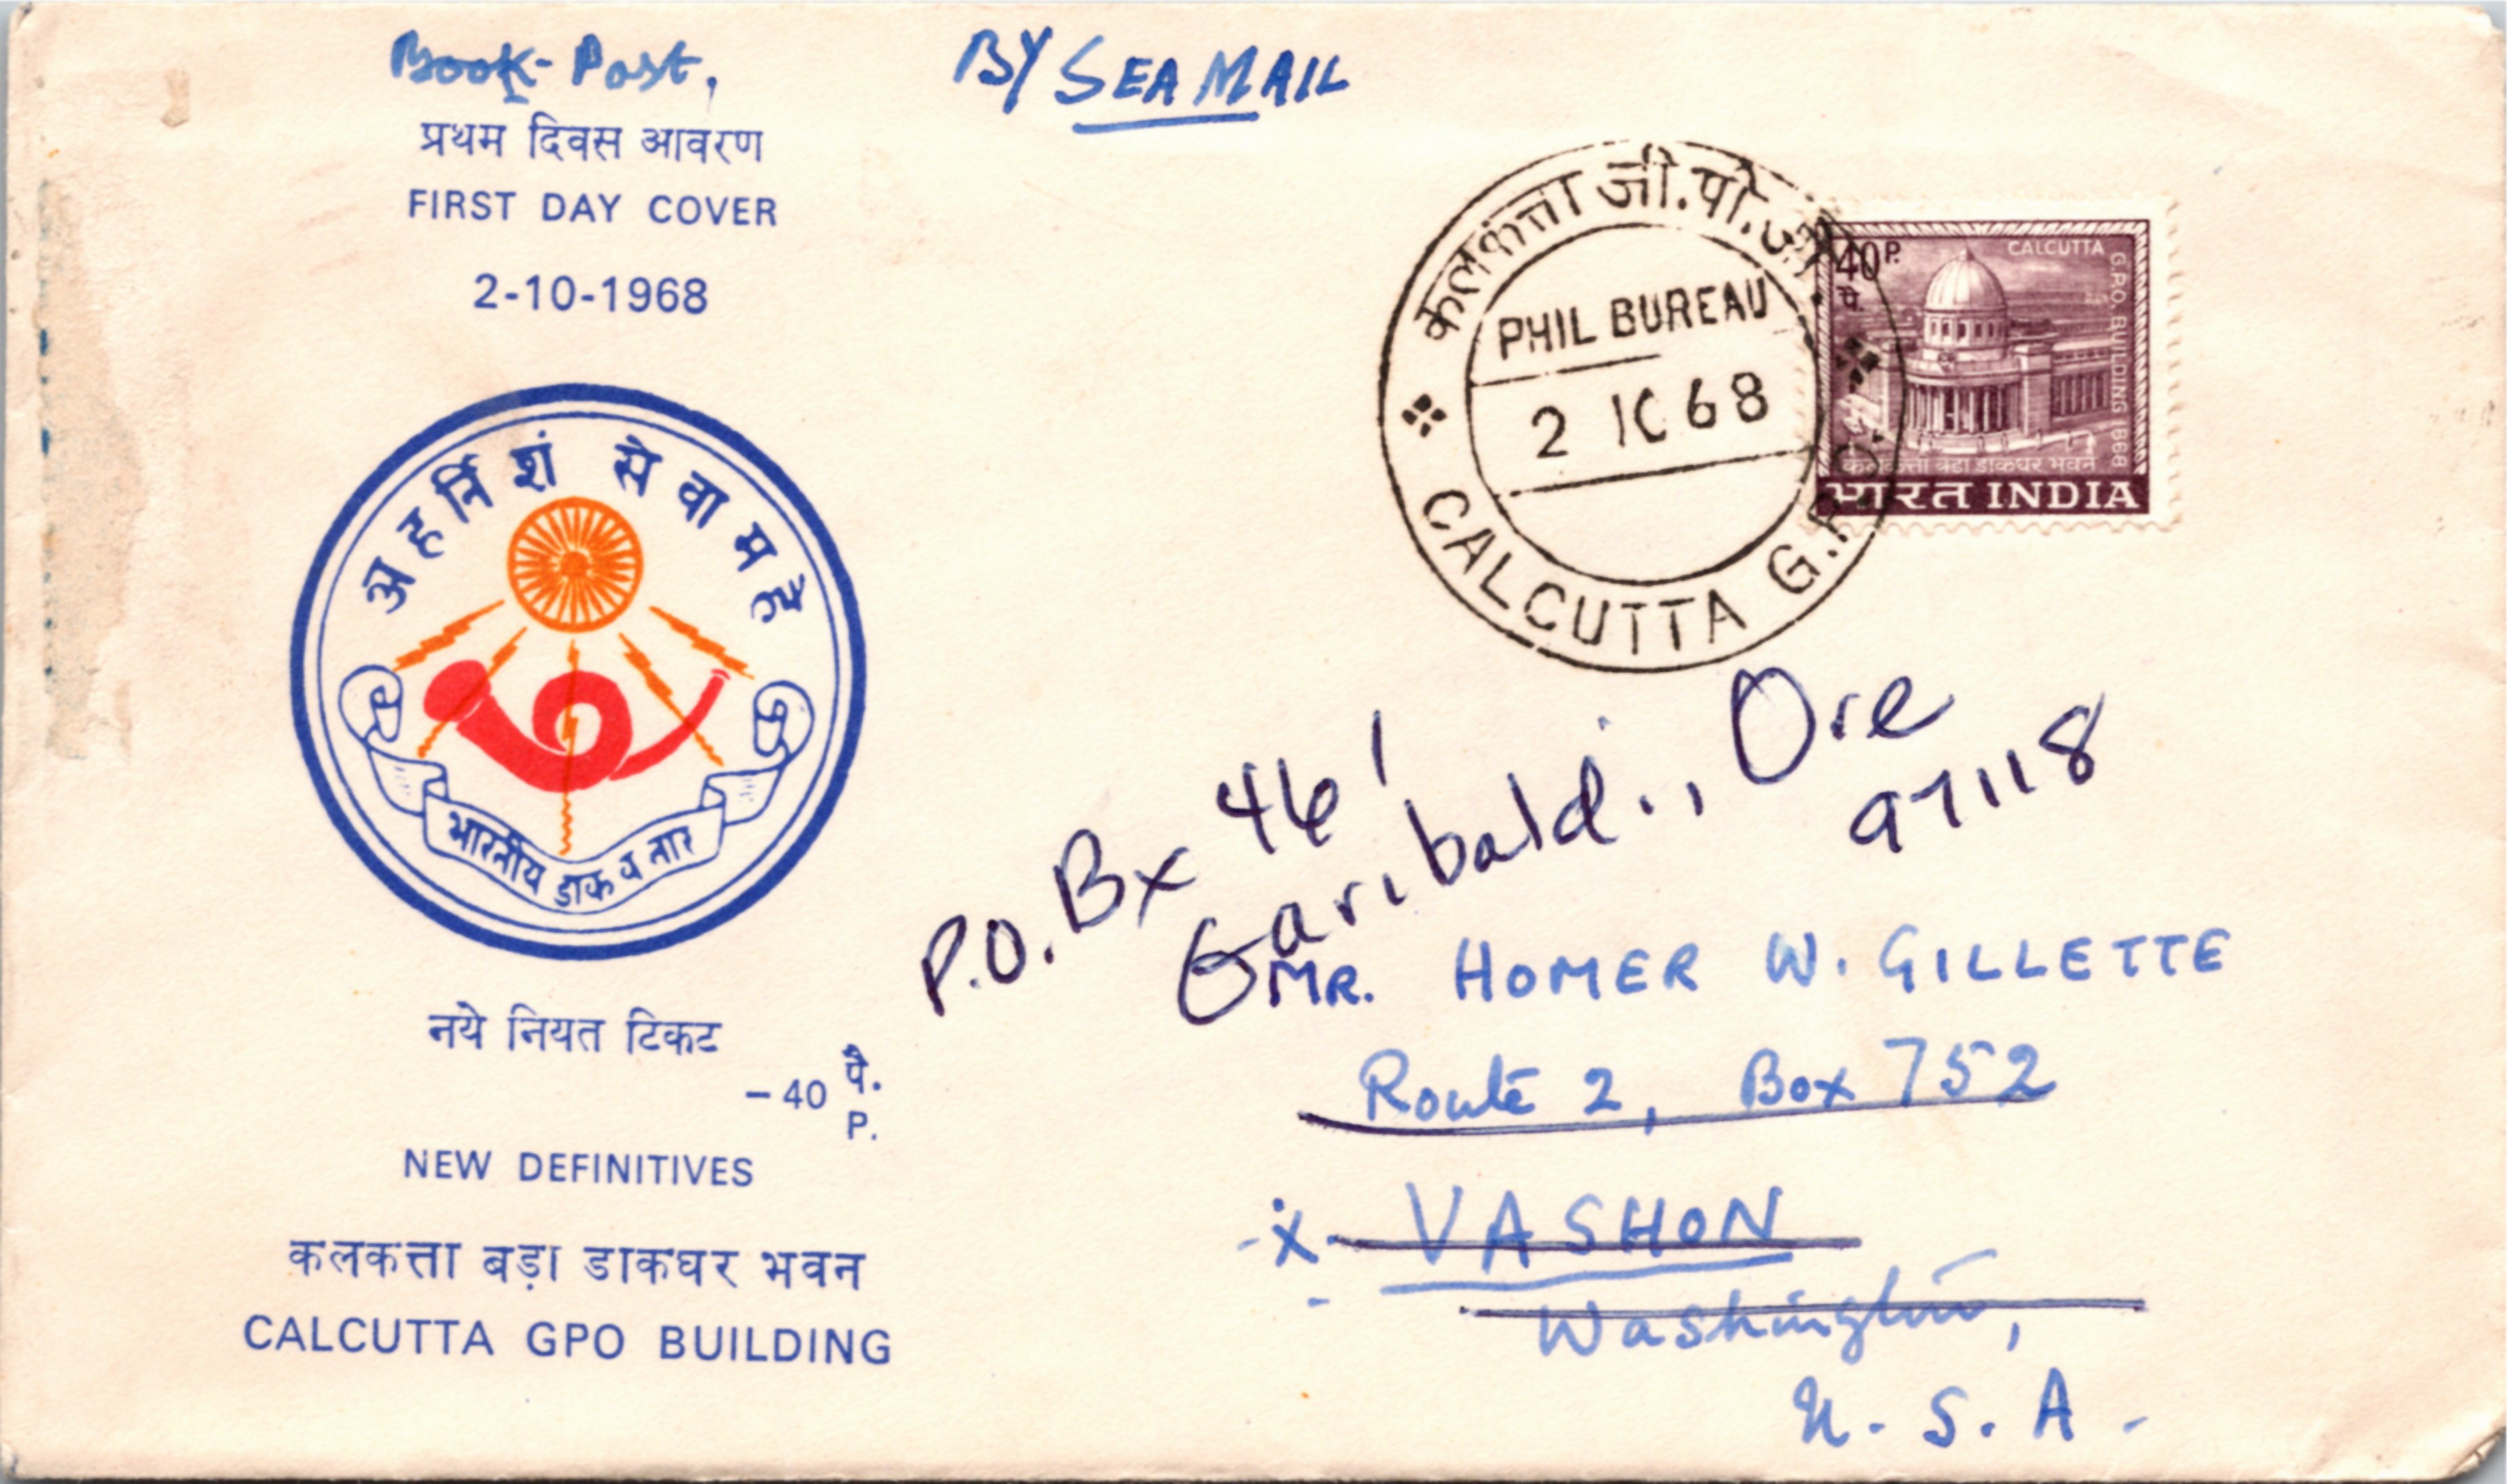 Book-Post,
BY SEA MAIL
प्रथम दिवस आवरण
FIRST DAY COVER
2-10-1968
अहर्निशं सेवामहे
भारतीय डाक व तार
नये नियत टिकट
-40 पै.
P.
NEW DEFINITIVES
कलकत्ता बड़ा डाकघर भवन
CALCUTTA GPO BUILDING
कलकत्ता जी.पी.ओ.
PHIL BUREAU
2 10 68
CALCUTTA G.P.O.
40 P.
पै
CALCUTTA G.P.O. BUILDING 1868
कलकत्ता बड़ा डाकघर भवन
भारत INDIA
P.O. Bx 461
Garibaldi, Ore
97118
MR. HOMER W. GILLETTE
Route 2, Box 752
VASHON
Washington,
U.S.A.